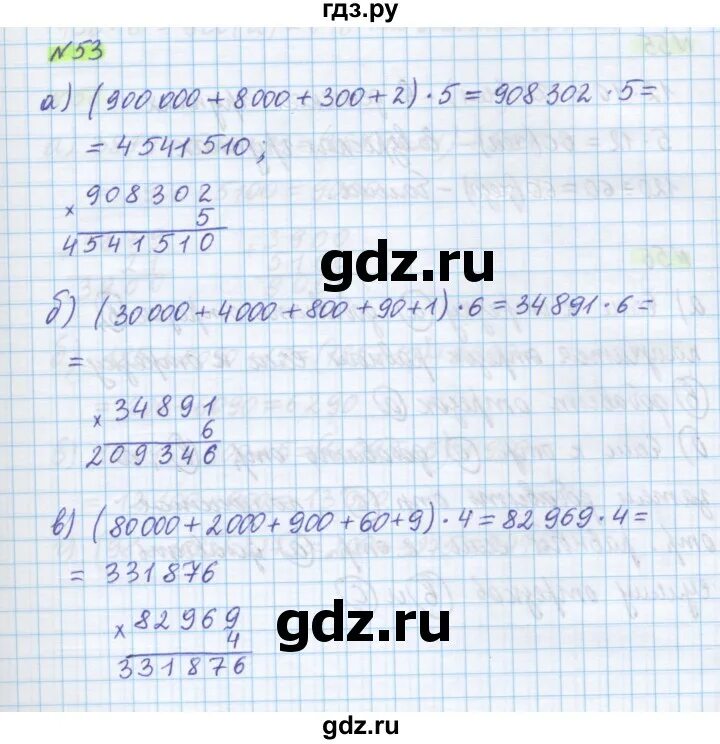 гдз.ру
№53
а) (900 000 + 8000 + 300 + 2) · 5 = 908 302 · 5 =
= 4 541 510;
× 908302
5
4541510
gdz.ru
б) (30 000 + 4000 + 800 + 90 + 1) · 6 = 34 891 · 6 =
=
× 34891
6
209346
в) (80000 + 2000 + 900 + 60 + 9) · 4 = 82 969 · 4 =
= 331876
× 82969
4
331876
gdz.ru
gdz.ru